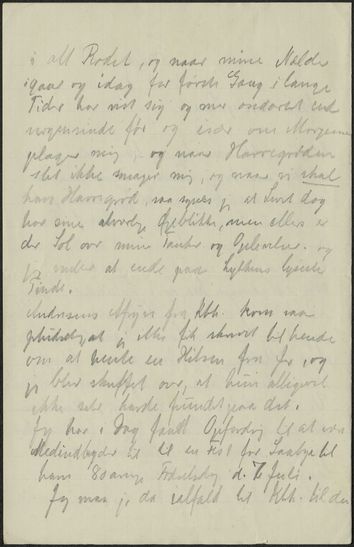 i alt Rodet, og naar mine Nælde
igaar og idag for første Gang i lange
Tider har vist sig og mer ondartet end
nogensinde før og især om Morgenen
plager mig, og naar Havregrøden
slet ikke smager mig, og naar vi skal
have Havregrød, saa synes jeg at Livet dog
har sine alvorlige Øjeblikke, men ellers er
der Sol over mine Tanker og Oplevelser. og
jeg at ende paa Lykkens lyseste
Tinde.
Andersens Afrejse fra Kbh. kom saa
pludseligt at jeg ikke fik skrevet til hende
om at hente en Hilsen fra jer, og
jeg blev skuffet over, at hun alligevel
ikke selv havde fundet paa det.
Jeg har i Dag faaet Opfordring til at være
Medindbyder til en Fest for til
hans 80 aarige Fødselsdag d. 7 Juli.
Jeg maa jo da ialfald til Kbh. til den